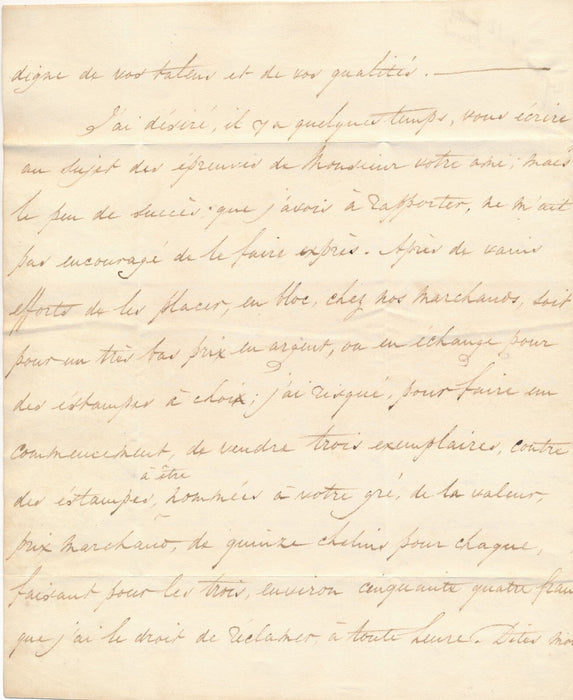 digne de vos talens et de vos qualités. —
J'ai désiré, il y a quelques temps, vous écrire
au sujet des épreuves de Monsieur votre ami; mais
le peu de succès, que j'avois à rapporter, ne m'ait
pas encouragé de le faire exprès. Après de vains
efforts de les placer, en bloc, chez nos marchands, soit
pour un très bas prix en argent, ou en échange pour
des estampes à choix; j'ai risqué, pour faire un
commencement, de vendre trois exemplaires, contre
à être
des éstampes, nommées à votre gré, de la valeur,
prix marchand, de quinze chelins pour chaque,
faisant pour les trois, environ cinquante quatre fran
que j'ai le droit de réclamer, à toute heure. Dites moi